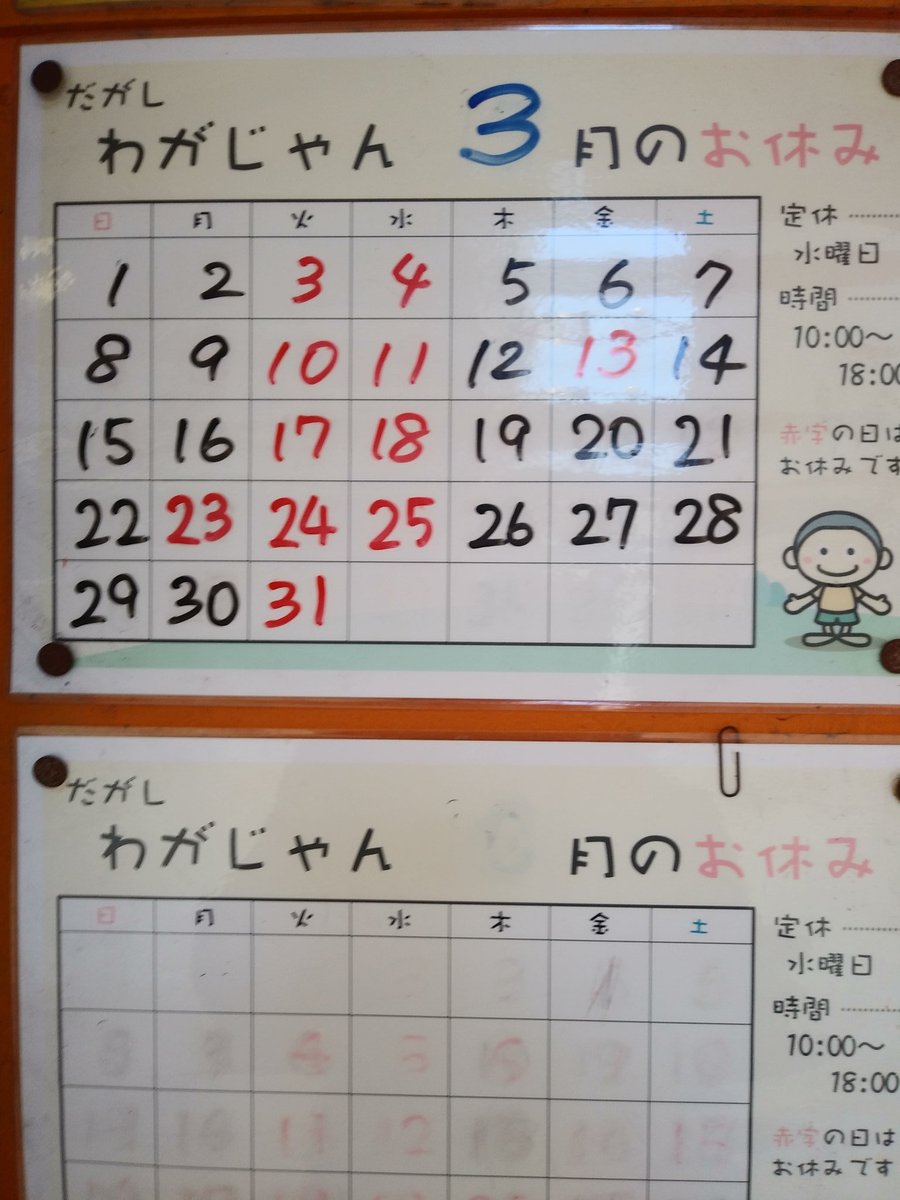 だがし
わがじゃん 3月のお休み
日 月 火 水 木 金 土
1 2 3 4 5 6 7
8 9 10 11 12 13 14
15 16 17 18 19 20 21
22 23 24 25 26 27 28
29 30 31
定休
水曜日
時間
10:00〜
18:00
赤字の日は
お休みです
だがし
わがじゃん 月のお休み
日 月 火 水 木 金 土
定休
水曜日
時間
10:00〜
18:00
赤字の日は
お休みです